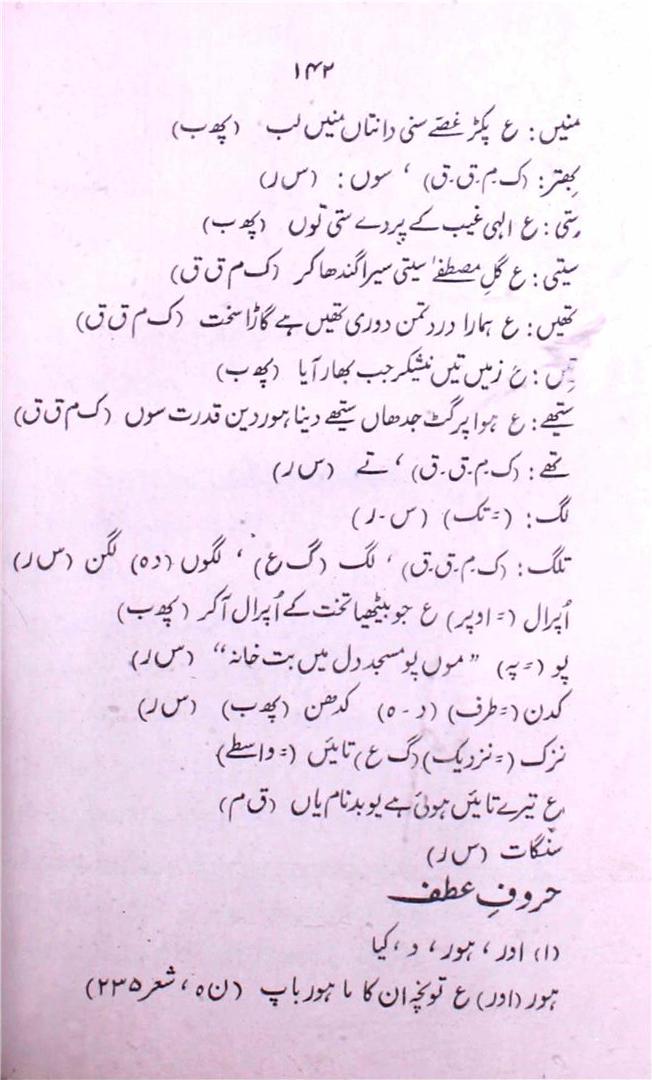 ۱۴۲
منیں: ع پکڑ غصّے سنی دانتاں منیں لب (پھ ب)
بھتر: (ک۔م۔ق۔ق) ، سوں: (س ر)
ستی: ع الہی غیب کے پردے ستی توں (پھ ب)
سیتی: ع گلِ مصطفےٰ سیتی سیرا گندھا کر (ک م ق ق)
تھیں: ع ہمارا درد تمن دوری تھیں ہے گاڑا سخت (ک م ق ق)
تیں: ع زمیں تیں نیشکر جب بھار آیا (پھ ب)
ستھے: ع ہوا پرگٹ جدھاں ستھے دینا ہور دین قدرت سوں (ک م ق ق)
تھے: (ک۔م۔ق۔ق) ، تے (س ر)
لگ: (= تک) (س۔ر)
تلگ: (ک۔م۔ق۔ق) ، لک (گ ع) ، لگوں (د ہ) لگن (س ر)
اُپرال (= اوپر) ع جو بیٹھیا تخت کے اُپرال آکر (پھ ب)
پو (= پہ) ”موں پو مسجد دل میں بت خانہ“ (س ر)
کدن (= طرف) (د۔ہ) کدھن (پھ ب) (س ر)
نزک (= نزدیک) (گ ع) تائیں (= واسطے)
ع تیرے تائیں ہوئی ہے یو بدنام یاں (ق م)
سنگات (س ر)
حروفِ عطف
(۱) اور ، ہور ، د ، کیا
ہور (اور) ع تونچہ ان کا ما ہور باپ (ن ہ ، شعر ۲۳۵)